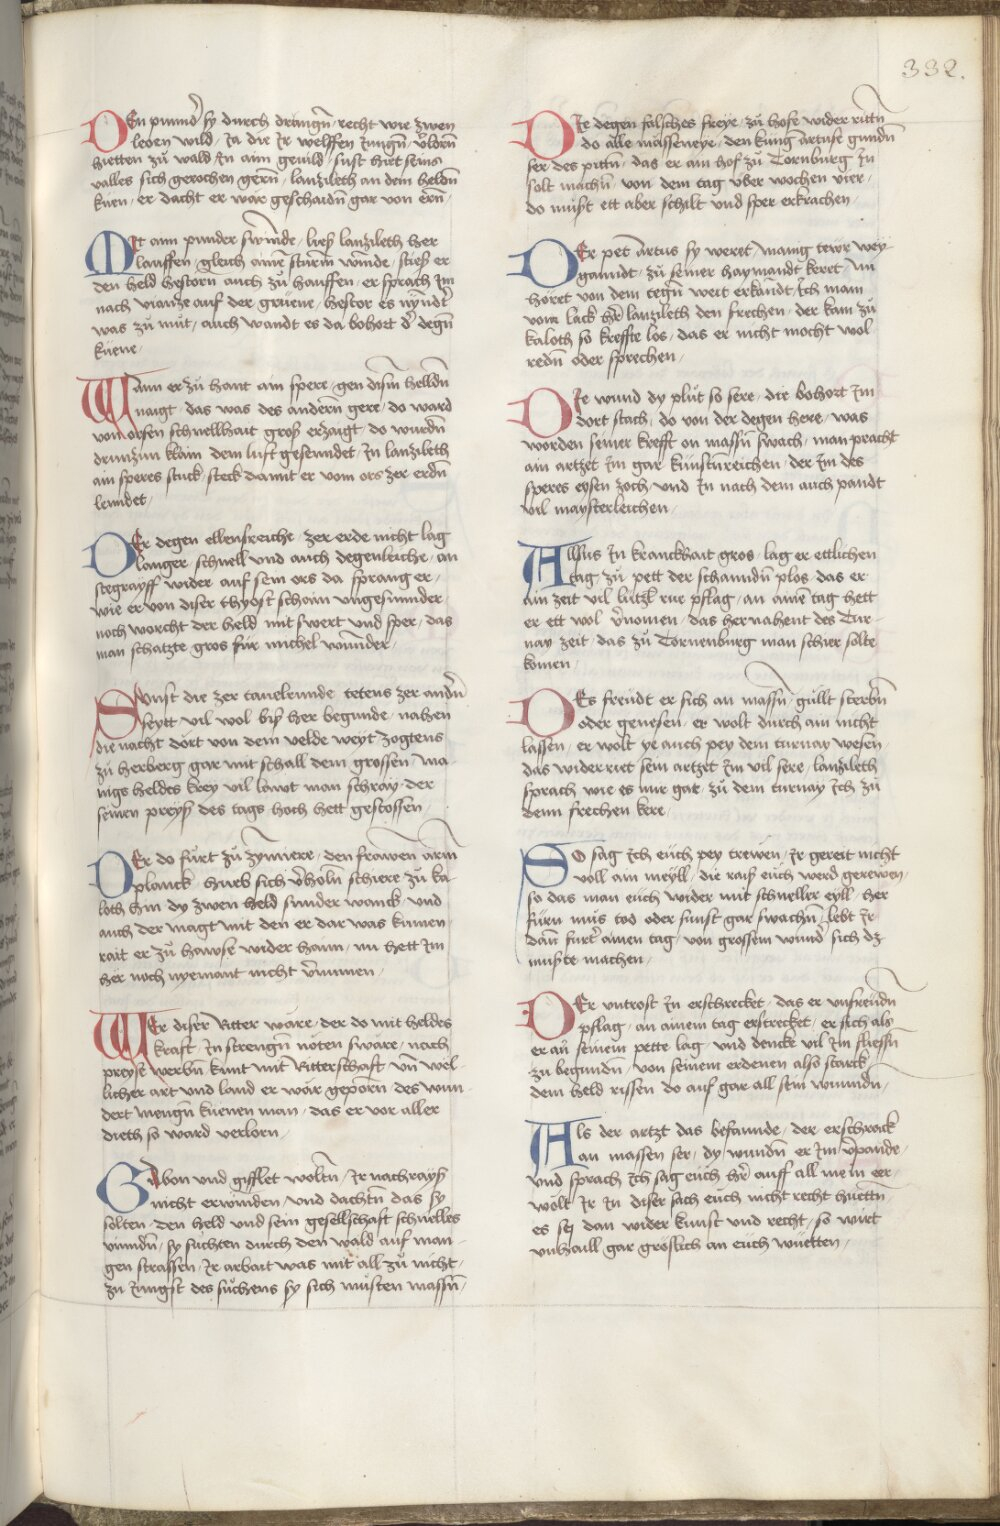 332.
DEn punnd̕ sy durch drangn̄ / recht wie zwen
leoen wild / Ja die Ir welffen Jungn̄ / v̈ldrn̄
hietten zů wald Jn aim gewild / sust hiet seins
valles sich gerochen gern̄ / lanzileth an dem heldn̄
küen / er dacht er war geschaidn̄ gar von ern̄ /
MIt aim punder swinde / lies lanzileth her
lauffen / gleich aine sturm winde / sties er
den held hestorn auch zů hauffen / er sprach Jm
nach vianze auf der gruene / hestor es wendt̕
was zů můt / auch wandt es da bohort d̕ degn̄
küene /
WAnn er zů hant ain spere / gen disem helldn̄
naigt / das was des andern̄ gere / do ward
von orsen schnellhait gros erzaigt / do wurdn̄
drunzun klain dem lust gesenndet / Jn lanzileth
ain speres stuck / steckt damit er vom ors zer erdn̄
lenndet /
DEr degen ellensreiche / zer erde nicht lag
langer / schnell vnd auch degenleiche / an
stegrayff wider auf sein ors da sprang er /
wie er von diser thyost schain vngesunnder /
noch worcht der held mit swert vnd sper / das
man schatzte gros für michel wunnder /
SVnst die zer tauelrunde tetens zer andn̄
seytt vil wol bis her begunde / nahen
die nacht dort von dem velde weyt zogtens
zů herberg gar mit schall dem grossen / ma-
nigs heldes krey vil lawt man schray / der
seinen preys des tags hoch hett gestossen /
DEr do fuert zů zymiere / den frawen arm
planck / hueb sich v̕holn schiere zů ka-
loth hin dy zwen held sunder wanck / vnd
auch der magt mit den er dar was kumen /
rait er zů hawse wider haim / nu hett Jm
her noch nyemant nicht v̕numen /
WEr diser Ritter ware / der do mit heldes
kraft / Jn strengn̄ nöten sware / nach
preyse werbn̄ kunt mit Ritterschafft / vn̄ wel-
licher art vnd land er wär geporn / des wun-
dert mengn̄ küenen man / das er vor aller
dieth so ward verlorn /
GAbon vnd gifflet woltn̄ / Jr nachrays
nicht erwinden / vnd dachtn̄ das sy
solten / den held vnd sein gesellschaft schnelles
vinndn̄ / sy suchten durch den wald auf man-
gen strassen / Jr arbait was mit all zů nicht /
zu Jungst des süchens sy sich müsten massn̄ /
DIe degen falsches freye / zů hofe wider rittn̄
do alle masseneye / den kung artuse gundn̄
ser des pittn̄ / das er ain hof zů Tornburg Jn
solt machn̄ / von dem tag v̈ber wochen vier /
do müst ett aber schilt vnd sper erkrachen /
DEr pet Artus sy weret / manig tewr wey-
gannde / zů seiner haymandt kert / nu
höret von dem tegn̄ wert erkandt / Ich main
vom lack hr̄ lanzileth den frechen / der kam zů
kaloth so kreffte los / das er nicht mocht wol
redn̄ oder sprechen /
DIe wund dy plůt so sere / die bohort Jm
dort stach / do von der degen here / was
worden seiner krefft on massn̄ swach / man pracht
ain artzet Jm gar künstenreichen / der Jm des
speres eysen zoch / vnd Jn nach dem auch pandt
vil maysterleichen /
ALlsus Jn kranckhait gros / lag er ettlichen
tag / zů pett der schanndn̄ plos / das er
ain zeit vil lützl̕ rue pflag / an aine tag hett
er ett wol v̕nomen / das her nahent des Tur-
nay zeit / das zů Tornenburg man schier solte
komen /
DEs freudt er sich an massn̄ / güllt sterbn̄
oder genesen / er wolt durch ain nicht
lassen / er wolt ye auch pey dem turnay wesen /
das widerriet sein artzet Jm vil sere / lanzileth
sprach wie es mir gat / zů dem turnay Ich zů
denn frechen kere /
SO sag Ich eüch pey trewen / Jr gereit nicht
voll ain meyll / die rais eüch werd gerewen /
so das man eüch wider mit schneller eyll / her
fürn mus tod oder sunst gar swachn̄ / lebt Jr
dan̄ fürt̕ ainen tag / von grossem wund̕ sich dz
müste machen /
DEr vntrost Jn erschrecket / das er vnfreudn̄
pflag / an ainem tag erstrecket / er sich als
er an̄ seinem pette lag / vnd dencke vil Jm fliessn̄
zu begundn̄ / von seinem erdenen also starck /
dem held rissen do auf gar all sein wunndn̄ /
ALs der artzt das befannde / der erschrack
an massen ser / dy wundn̄ er Jm v̕pande /
vnd sprach Ich sag eüch hr̄ auff all mein eer /
wölt Jr Jn diser sach eüch nicht recht huettn̄
es sey dan wider kunst vnd recht / so wirt
vnhaill gar gröslich an eüch wüetten /